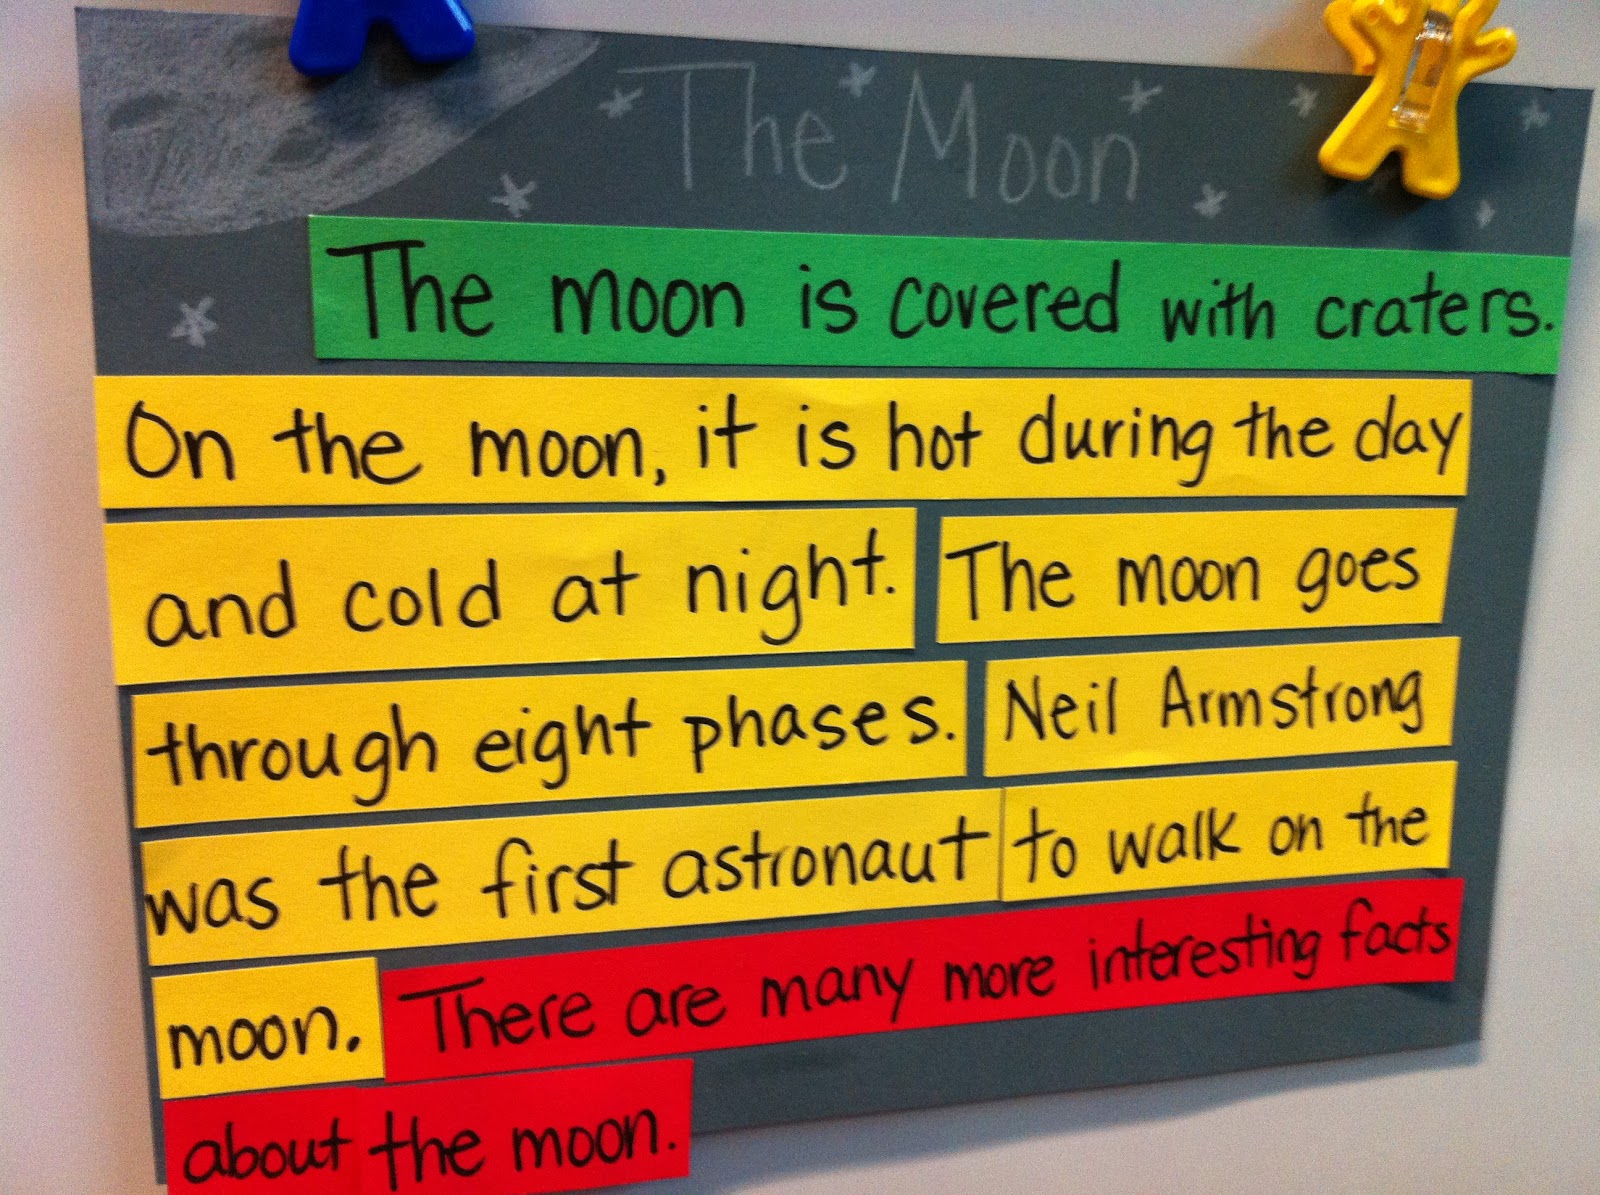 The Moon
The moon is covered with craters.
On the moon, it is hot during the day
and cold at night. The moon goes
through eight phases. Neil Armstrong
was the first astronaut to walk on the
moon. There are many more interesting facts
about the moon.